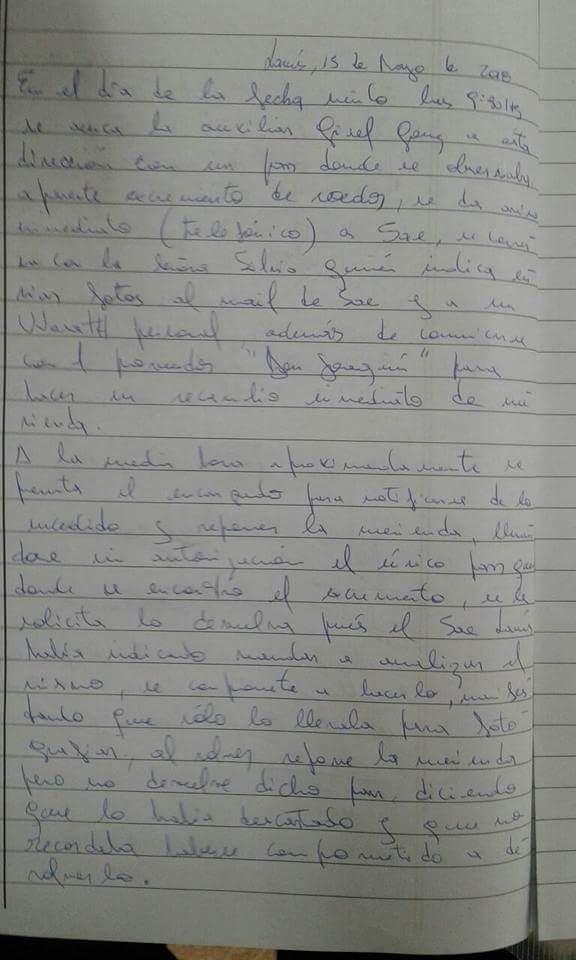 Lanús, 15 de Mayo de 2018
En el día de la fecha siendo las 9:30 hs
se acerca la auxiliar Gisel a esta
dirección con un pan donde se observaba
aparente excremento de roedor, se da aviso
inmediato (telefónico) a Sae, se comu
nica la señora Silvia quien indica en
viar fotos al mail de Sae y a un
personal, además de comunicarse
con el proveedor "Don Joaquín" para
hacer un recambio inmediato de me
rienda.
A la media hora aproximadamente se
el encargado para notificarse de lo
sucedido y reponer la merienda, lleván
dose sin autorización el único pan
donde se encontró el excremento, se le
solicita lo devuelva pues el Sae Lanús
había indicado mandar a analizar el
mismo, se compromete a hacerlo, manifes
tando que sólo lo llevaba para foto
grafiar, al volver repone la merienda
pero no devuelve dicho pan, diciendo
que lo había descartado y que no
recordaba haberse comprometido a de
volverlo.